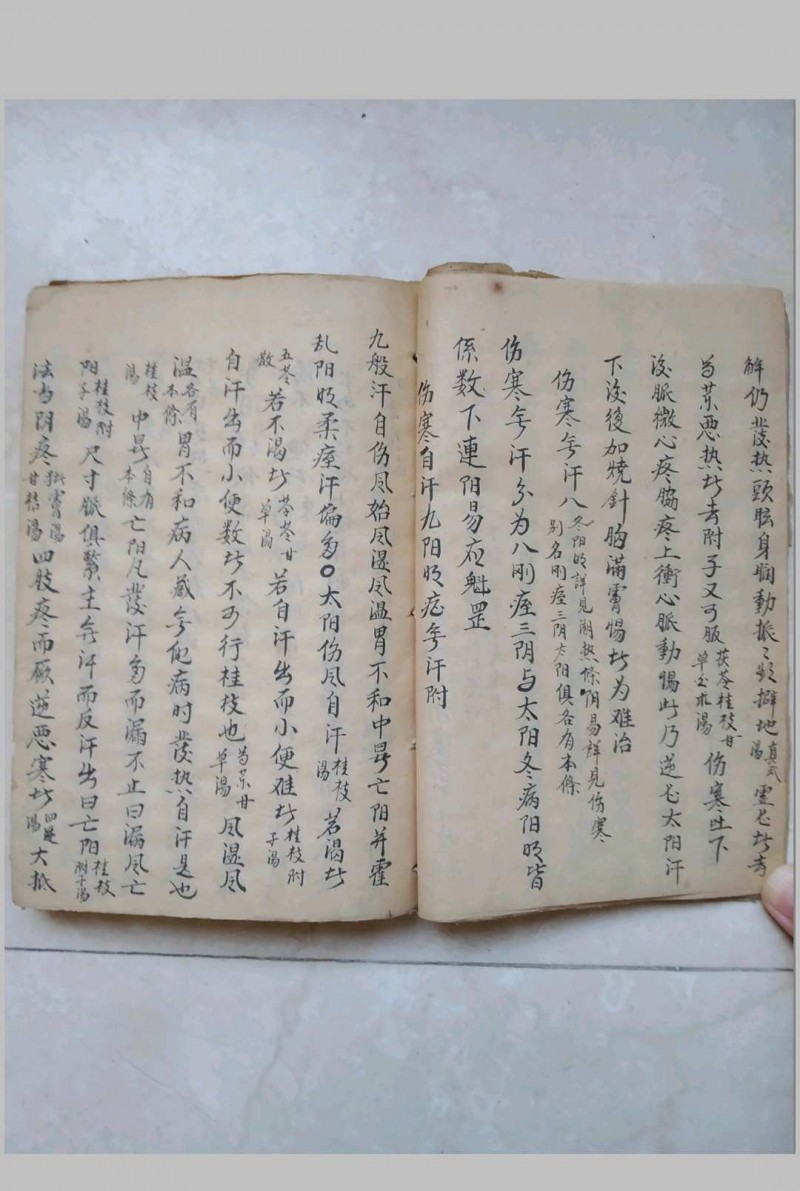 解仍發热頭眩身瞤動振〻欲擗地真武湯霊
芍薬悪热去附子又可服茯苓桂枝甘草白术湯伤寒吐下
没脈微心疼脇疼上衝心脈動惕此乃逆太阳汗
下没後加燒針胸滿霄惕㪽为难治
伤寒无汗八冬阳明詳見潮热條阴易詳見伤寒别名刚痓三阴太阳俱各有本條
伤寒无汗分为八刚痓三阴与太阳冬病阳明皆
係数下連阳易应魁罡
伤寒自汗九阳明症无汗附
九般汗自伤风始风湿风温胃不和中暑亡阳并霍
乱阳明柔痓汗偏多〇太阳伤风自汗桂枝湯若渴㪽
五苓散若不渴㪽茯苓甘草湯若自汗出而小便难㪽桂枝附子湯
自汗出而小便数㪽不可行桂枝也芍薬甘草湯风湿风
温各有本條胃不和病人藏无他病时發热自汗是也
桂枝湯中暑自有本條亡阳凡發汗多而漏不止曰漏风亡
阳桂枝附子湯尺寸脈俱緊主无汗而反汗出曰亡阳桂枝附子湯
法当阴疼甘桔湯四肢疼而厥逆悪寒㪽四逆湯大抵